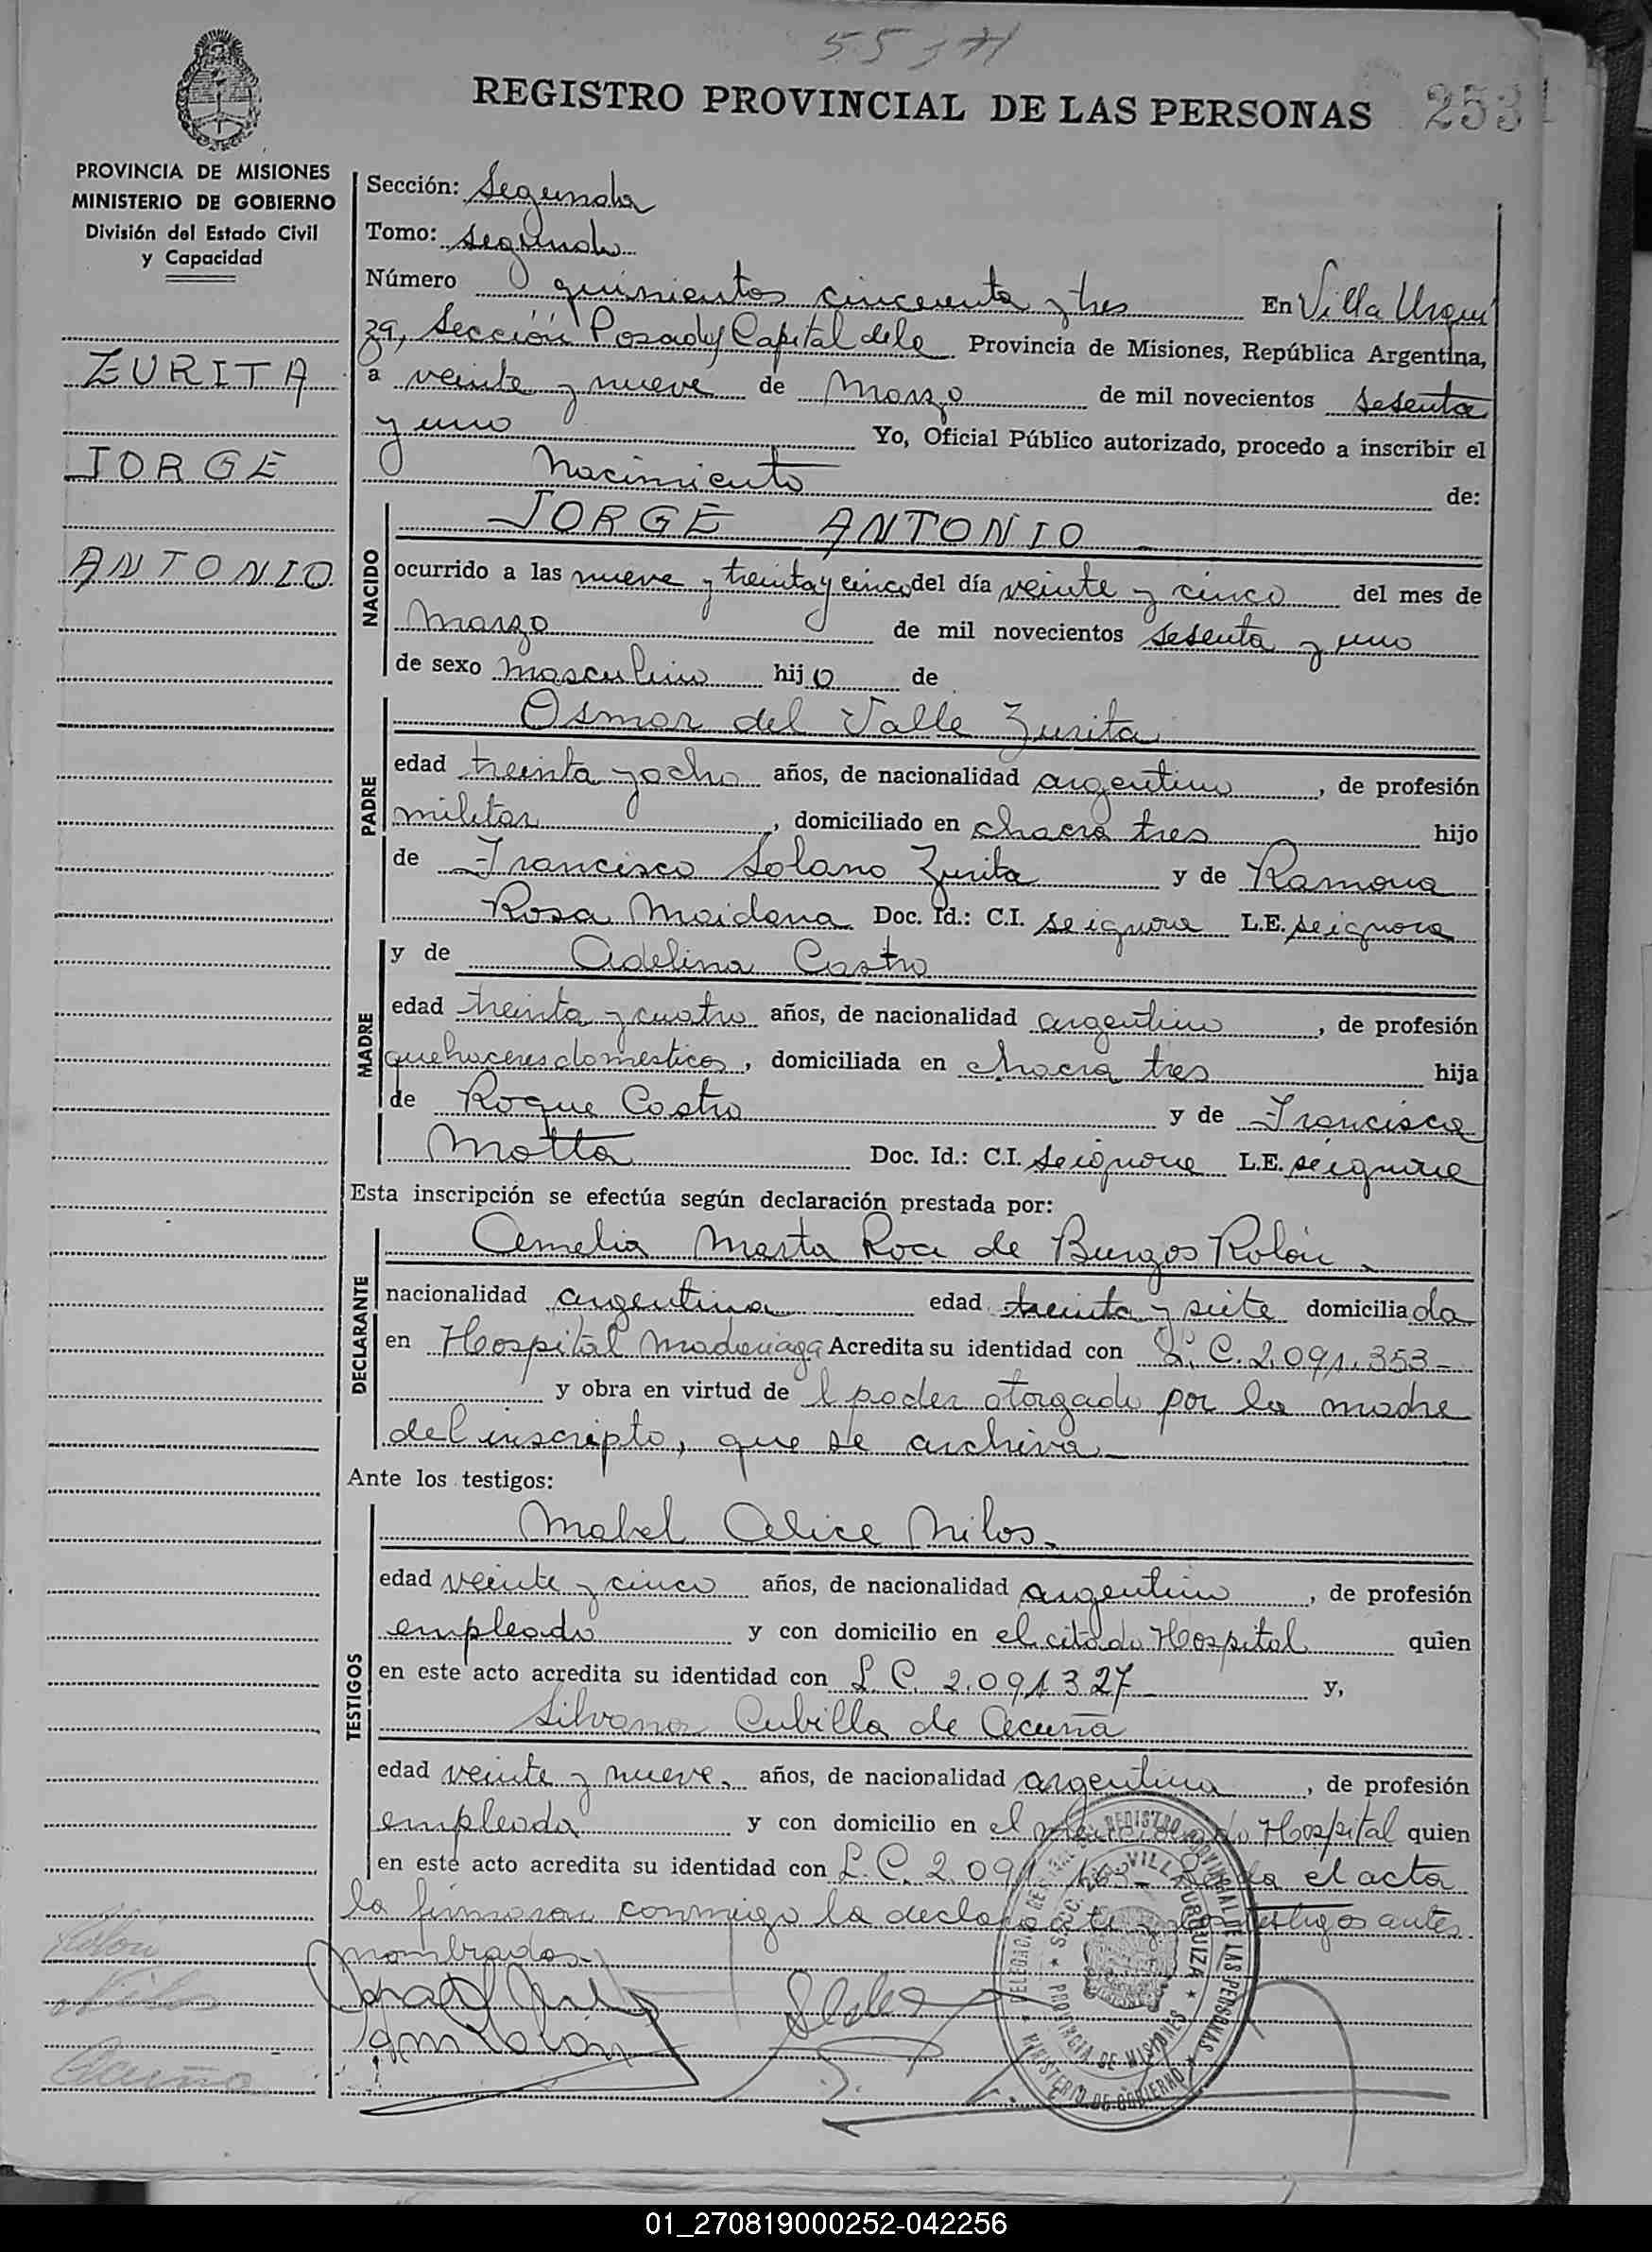 REGISTRO PROVINCIAL DE LAS PERSONAS
253
PROVINCIA DE MISIONES
MINISTERIO DE GOBIERNO
División del Estado Civil
y Capacidad
ZURITA
JORGE
ANTONIO
Sección: Segunda
Tomo: Segundo
Número quinientos cincuenta y tres En Villa Urqui
za, Sección Posadas Capital de la Provincia de Misiones, República Argentina,
a veinte y nueve de Marzo de mil novecientos sesenta
y uno Yo, Oficial Público autorizado, procedo a inscribir el
Nacimiento de:
NACIDO
JORGE ANTONIO
ocurrido a las nueve y treinta y cinco del día veinte y cinco del mes de
Marzo de mil novecientos sesenta y uno
de sexo masculino hijo de
PADRE
Osmar del Valle Zurita
edad treinta y ocho años, de nacionalidad argentino, de profesión
militar, domiciliado en chacra tres hijo
de Francisco Solano Zurita y de Ramona
Rosa Maidana Doc. Id.: C.I. se ignora L.E. se ignora
MADRE
y de Adelina Castro
edad treinta y cuatro años, de nacionalidad argentina, de profesión
quehaceres domesticos, domiciliada en chacra tres hija
de Roque Castro y de Francisca
Motta Doc. Id.: C.I. se ignora L.E. se ignora
Esta inscripción se efectúa según declaración prestada por:
DECLARANTE
Amelia Marta Roa de Burgos Rolón
nacionalidad argentina edad treinta y siete domiciliada
en Hospital Madariaga Acredita su identidad con L. C. 2.091.353-
y obra en virtud de l poder otorgado por la madre
del inscripto, que se archiva
Ante los testigos:
TESTIGOS
Mabel Alice Nilos
edad veinte y cinco años, de nacionalidad argentina, de profesión
empleada y con domicilio en el citado Hospital quien
en este acto acredita su identidad con L. C. 2.091327 y,
Silvana Cubilla de Acuña
edad veinte y nueve, años, de nacionalidad argentina, de profesión
empleada y con domicilio en el Hospital quien
en este acto acredita su identidad con L.C. 2.091 el acta
la firmaran conmigo la declarante y los testigos antes
nombrados-
Rolón
Nilos
Acuña
REGISTRO PROVINCIAL DE LAS PERSONAS
VILLA URQUIZA
PROVINCIA DE MISIONES
MINISTERIO DE GOBIERNO
01_270819000252-042256